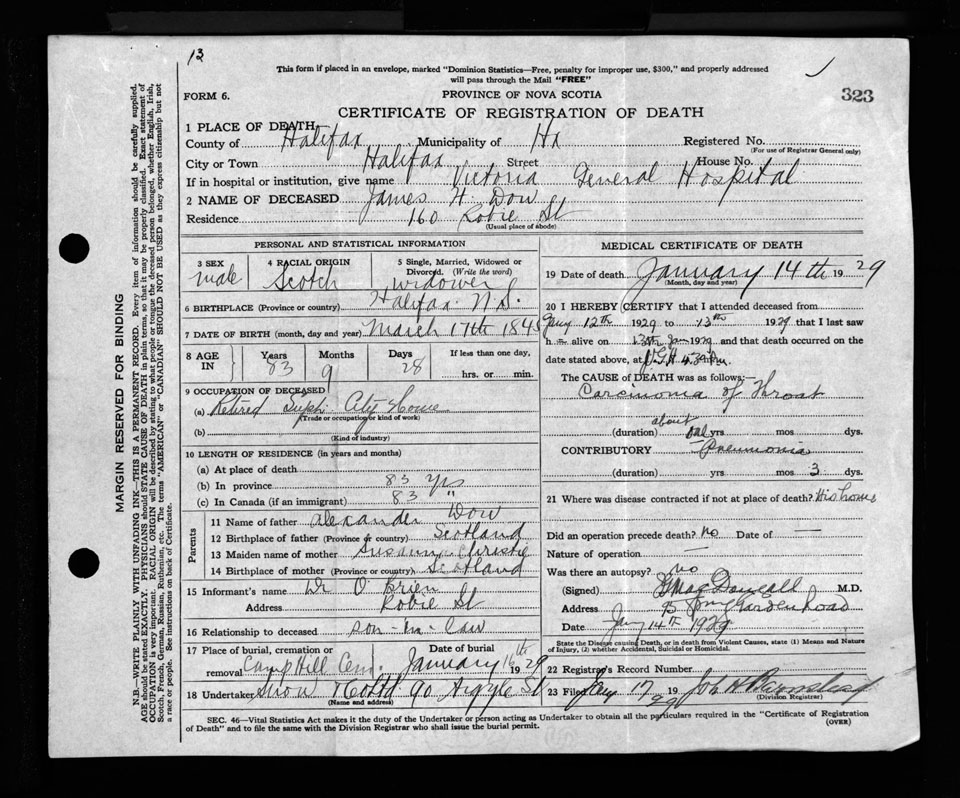 13
This form if placed in an envelope, marked "Dominion Statistics—Free, penalty for improper use, $300," and properly addressed
will pass through the Mail "FREE"
FORM 6. PROVINCE OF NOVA SCOTIA 323
CERTIFICATE OF REGISTRATION OF DEATH
1 PLACE OF DEATH
County of Halifax Municipality of Hx Registered No.
(For use of Registrar General only)
City or Town Halifax Street House No.
If in hospital or institution, give name Victoria General Hospital
2 NAME OF DECEASED James H. Dow
Residence 160 Robie St
(Usual place of abode)
PERSONAL AND STATISTICAL INFORMATION
3 SEX male
4 RACIAL ORIGIN Scotch
5 Single, Married, Widowed or Divorced. (Write the word) widower
6 BIRTHPLACE (Province or country) Halifax N.S.
7 DATE OF BIRTH (month, day and year) March 17th 1845
8 AGE IN Years Months Days If less than one day,
83 9 28 hrs. or min.
9 OCCUPATION OF DECEASED
(a) Retired Supt. City Home
(Trade or occupation or kind of work)
(b)
(Kind of industry)
10 LENGTH OF RESIDENCE (in years and months)
(a) At place of death
(b) In province 83 yrs
(c) In Canada (if an immigrant) 83 "
Parents
11 Name of father Alexander Dow
12 Birthplace of father (Province or country) Scotland
13 Maiden name of mother Christie
14 Birthplace of mother (Province or country) Scotland
15 Informant's name O'Brien
Address Robie St
16 Relationship to deceased son-in-law
17 Place of burial, cremation or removal Camp Hill Cem. Date of burial January 16th 1929
18 Undertaker Snow & Co Ltd 90 Argyle St
(Name and address)
MEDICAL CERTIFICATE OF DEATH
19 Date of death January 14th 1929
(Month, day and year)
20 I HEREBY CERTIFY that I attended deceased from
Jany 12th 1929 to 13th 1929 that I last saw
h alive on 13th Jan 1929 and that death occurred on the
date stated above, at
The CAUSE OF DEATH was as follows:—
Carcinoma of Throat
about
(duration) yrs mos dys.
CONTRIBUTORY Pneumonia
(duration) yrs mos 3 dys.
21 Where was disease contracted if not at place of death? His home
Did an operation precede death? No Date of —
Nature of operation —
Was there an autopsy? No
(Signed) MacDougall M.D.
Address 95
Date Jany 14th 1929
State the Disease causing Death, or in death from Violent Causes, state (1) Means and Nature
of Injury, (2) whether Accidental, Suicidal or Homicidal.
22 Registrar's Record Number
23 Filed Jany 17 1929 John H Barnstead
(Division Registrar)
SEC. 46—Vital Statistics Act makes it the duty of the Undertaker or person acting as Undertaker to obtain all the particulars required in the "Certificate of Registration
of Death" and to file the same with the Division Registrar who shall issue the burial permit. (OVER)
MARGIN RESERVED FOR BINDING
N.B.—WRITE PLAINLY WITH UNFADING INK—THIS IS A PERMANENT RECORD. Every item of information should be carefully supplied.
AGE should be stated EXACTLY. PHYSICIANS should STATE CAUSE OF DEATH in plain terms, so that it may be properly classified. Exact statement of
OCCUPATION is very important. RACIAL ORIGIN will be described by stating to what people or tongue the deceased person belonged, whether English, Irish,
Scotch, French, German, Russian, Ruthenian, etc. The terms "AMERICAN" or "CANADIAN" SHOULD NOT BE USED as they express citizenship but not
a race or people. See instructions on back of Certificate.